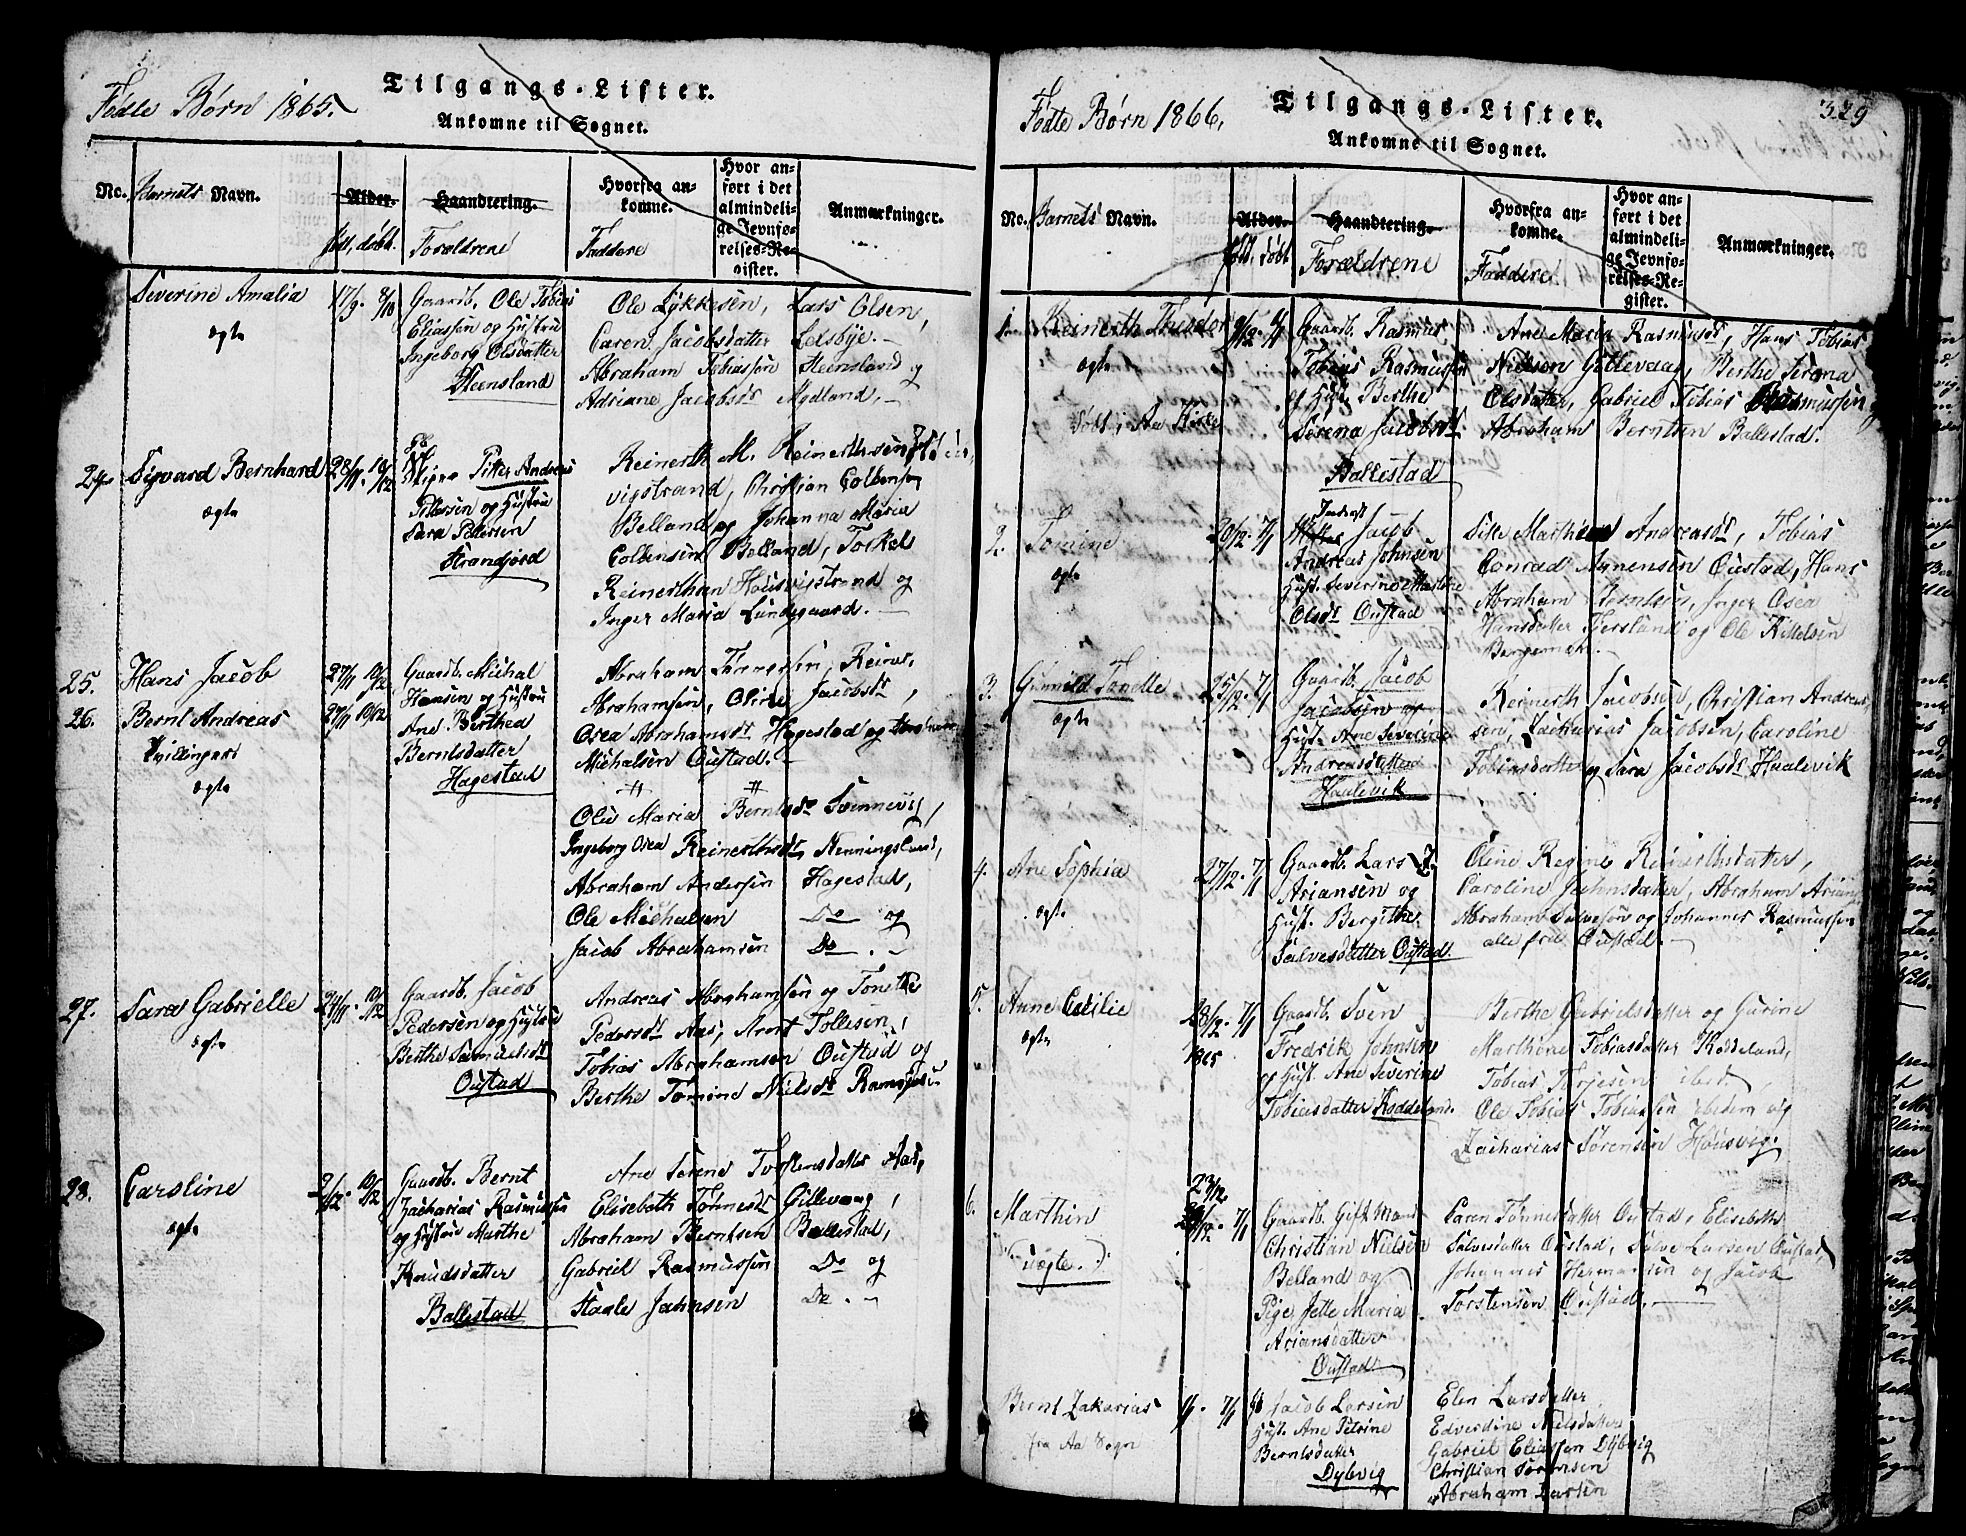 Fødte Børn 1865.
Tilgangs-Lister.
Ankomne til Sognet.
No. Barnets Navn.
Alder.
født, døbt.
Haandtering.
Forældrene
Hvorfra ankomne.
Faddere
Hvor anført i det almindelige Jevnførelses-Register.
Anmærkninger.
Severine Amalia
ægte
17/9. 8/10
Gaardb. Ole Tobias
Eliassen og Hustru
Ingeborg Olsdatter
Steensland
Ole Lykkesen, Lars Olsen,
Caren Jacobsdatter Leisbye.
Abraham Tobiassen Steensland og
Adriane Jacobsdr Mydland.
24. Sigvard Bernhard
ægte
28/11. 10/12
Pige Peter Andreas
Pettersen og Hustru
Sara Pedersen
Strandfjord
Reinerth M. Reinerthsen
vigstrand, Christian Colbensen
Belland og Johanna Maria
Colbensen Belland, Torkel
Reinerthsen Housvigstrand og
Inger Maria Lundegaard.
25. Hans Jacob
27/11 10/12
26. Bernt Andreas
27/11 10/12
Tvillinger
ægte
Gaardb. Michal
Hansen og Hustru
Ane Berthea
Berntsdatter
Hagestad
Abraham Tønnessen, Reiner
Abrahamsen, Oline Jacobsdr,
Osea Abrahamsdr Hagestad og Abraham
Michalsen Oustad.
Ole Maria Berntsdr Svennevig,
Ingeborg Osea Reinerthsdr Henningsland,
Abraham Andersen Hagestad,
Ole Michalsen Do og
Jacob Abrahamsen Do.
27. Sara Gabrielle
ægte
24/11. 10/12
Gaardb. Jacob
Pedersen og Hustru
Berthe Samuelsdr
Oustad
Andreas Abrahamsen og Tonette
Pedersdr Aas, Arnt Tollesen,
Tobias Abrahamsen Oustad og
Berthe Tomine Nielsdr
28. Caroline
ægte
2/12. 10/12
Gaardb. Bernt
Zacharias Rasmussen
og Hustru Marthe
Knudsdatter
Ballestad
Ane Serene Torstensdatter Aas,
Elisebeth Tønnesdr Gillevaag,
Abraham Berntsen Ballestad,
Gabriel Rasmussen Do og
Staale Jahnsen Do.
Fødte Børn 1866.
Tilgangs-Lister.
Ankomne til Sognet.
329
No. Barnets Navn.
Alder.
født, døbt
Haandtering.
Forældrene
Hvorfra ankomne.
Faddere
Hvor anført i det almindelige Jevnførelses-Register.
Anmærkninger.
1. Reinerth Theodor
ægte
døbt i Aa Kirke
9/12.
Gaardb. Rasmus
Tobias Rasmussen
og Hust. Berthe
Serena Jacobsdr
Ballestad
Ane Maria Rasmusdr, Hans Tobias
Nielsen Gillevaag, Berthe Serena
Olsdatter, Gabriel Tobias Rasmussen
Abraham Berntsen Ballestad.
2. Tomine
ægte
20/12. 7/1
Inderst Jacob
Andreas Johnsen
Hust. Severine Martine
Olsdr Oustad
Sille Marthea Andreasdr, Tobias
Conrad Aanensen Oustad, Hans
Abraham Berntsen, Inger Osea
Hansdatter Fjersland og Ole Killelsen
3. Gunnild Tonette
ægte
25/12. 7/1
Gaardb. Jacob
Jacobsen og
Hust. Ane Severine
Andreasdatter
Haalevik
Reinerth Jacobsen, Christian Andreas
sen, Zacharias Jacobsen, Caroline
Tobiasdatter og Sara Jacobsdr Haalevik
4. Ane Sophia
ægte
27/12. 7/1
Gaardb. Lars T.
Ariansen og
Hust. Bergithe
Salvesdatter Oustad.
Oline Regine Reinerthsdatter,
Caroline Jahnsdatter, Abraham Arians
Abraham Salvesen og Johannes Rasmussen
alle fra Oustad.
5. Anne Cecilie
ægte
28/12. 7/1
1865
Gaardb. Sven
Fredrik Johnsen
og Hust. Ane Severine
Tobiasdatter Koddeland.
Berthe Gabrielsdatter og Gurine
Marthine Tobiasdatter Koddeland,
Tobias Terjesen ibed.,
Ole Tobias Tobiassen ibedem og
Zacharias Sørensen Housvig.
6. Marthin
(: uægte. :)
23/12.
7/1
Gaardb. Gift Mand
Christian Nielsen
Belland og
Pige Jette Maria
Ariansdatter
Oustad
Caren Tønnesdatter Oustad, Elisebeth
Salvesdatter Oustad, Salve Larsen Oustad,
Johannes Hermansen og Jacob
Torstensen Oustad.
Bernt Zakarias
fra Aa Sogn
1/1. 7/1
Jacob Larsen
Hust. Ane Petrine
Berntsdatter
Dybvig
Elen Larsdatter
Edverdine Nielsdatter
Gabriel Eliassen Dybvig
Christian Sørensen
Abraham Larsen